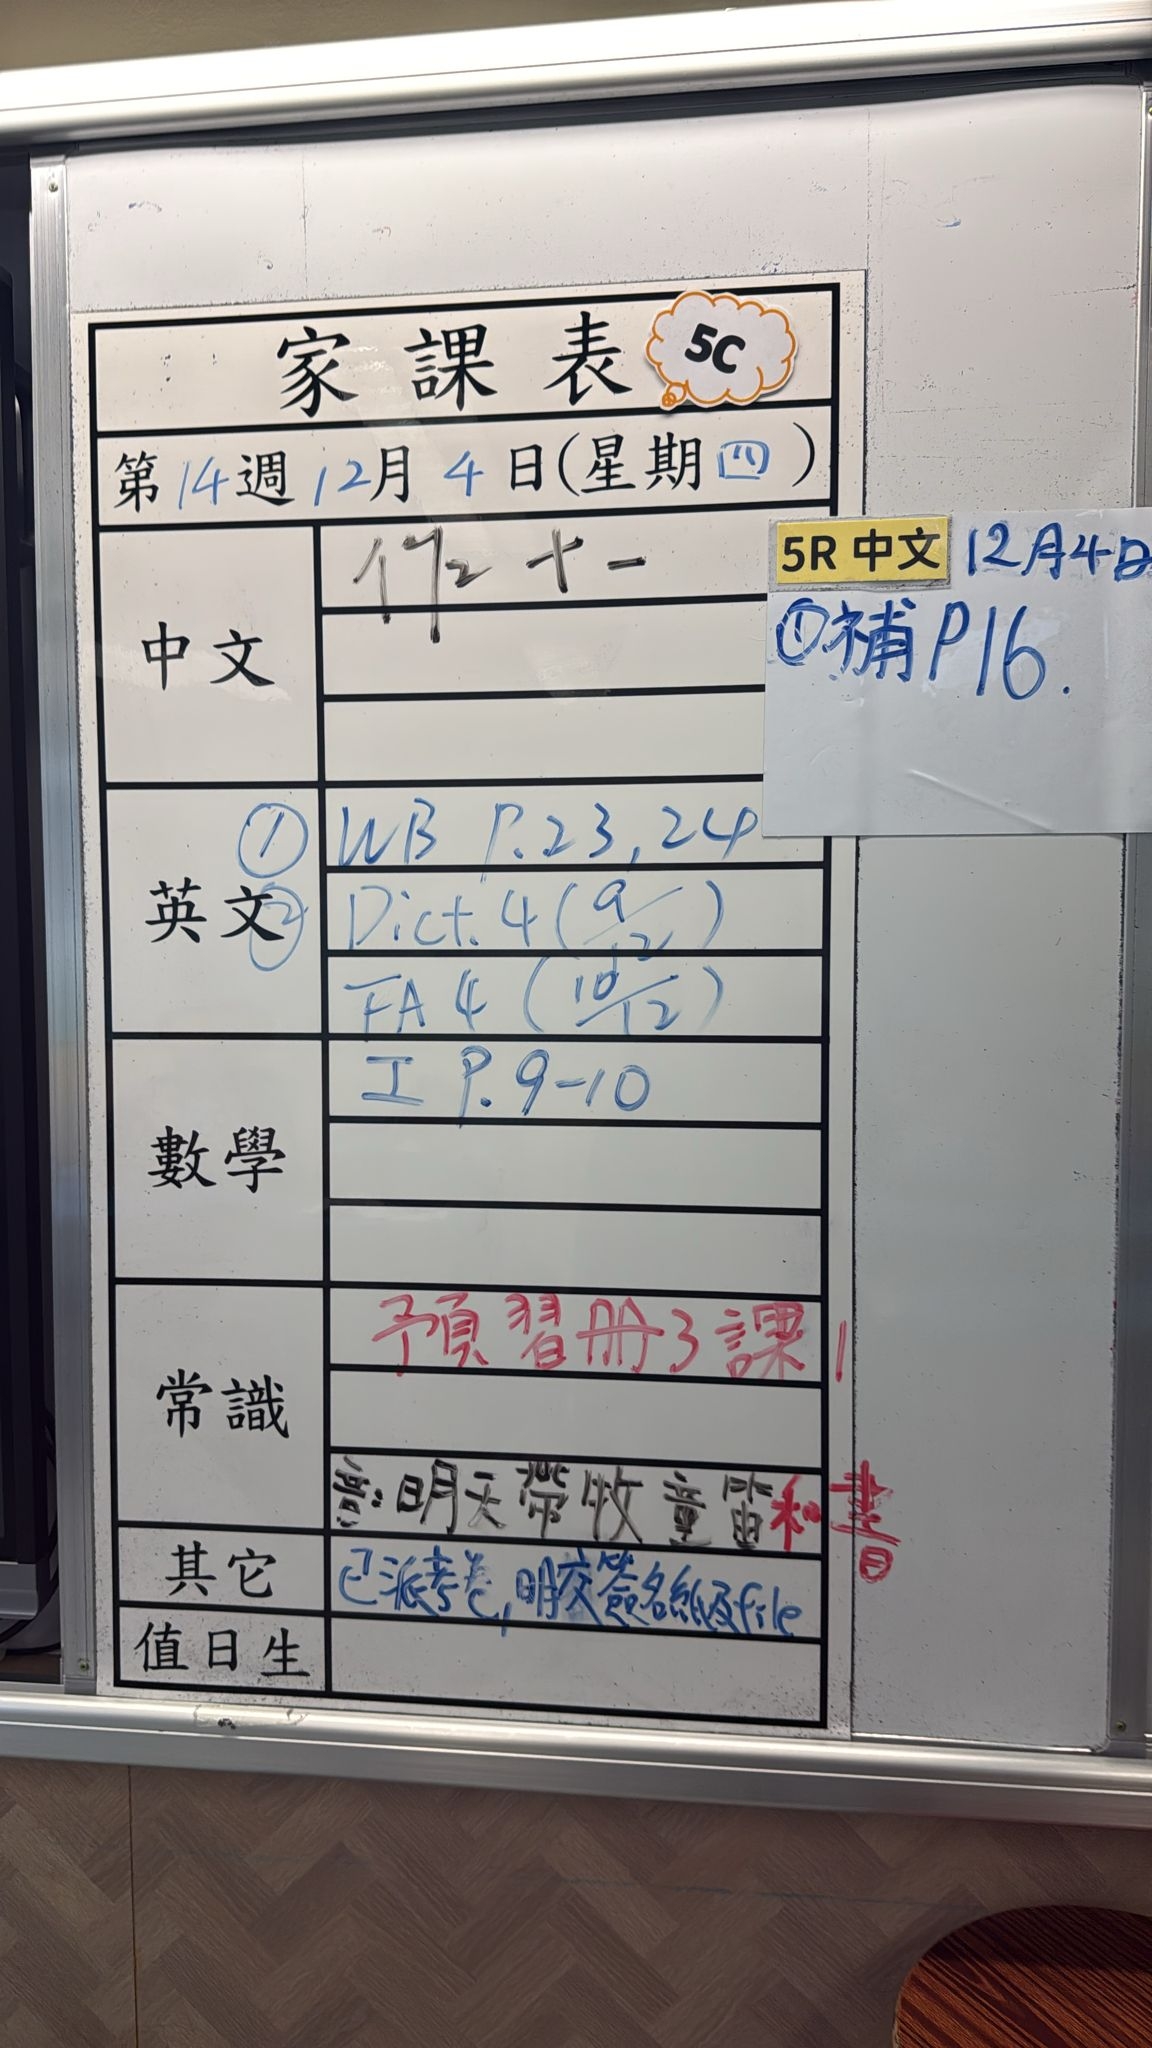 家課表 5C
第14週12月4日(星期四)
中文
十一
5R 中文 12月4日
①補P16.
英文
① WB P.23,24
② Dict.4(9/12)
FA4(10/12)
數學
工 P.9-10
常識
預習冊3課1
音:明天帶牧童笛和書
其它
已派考卷,明交簽名紙及file
值日生